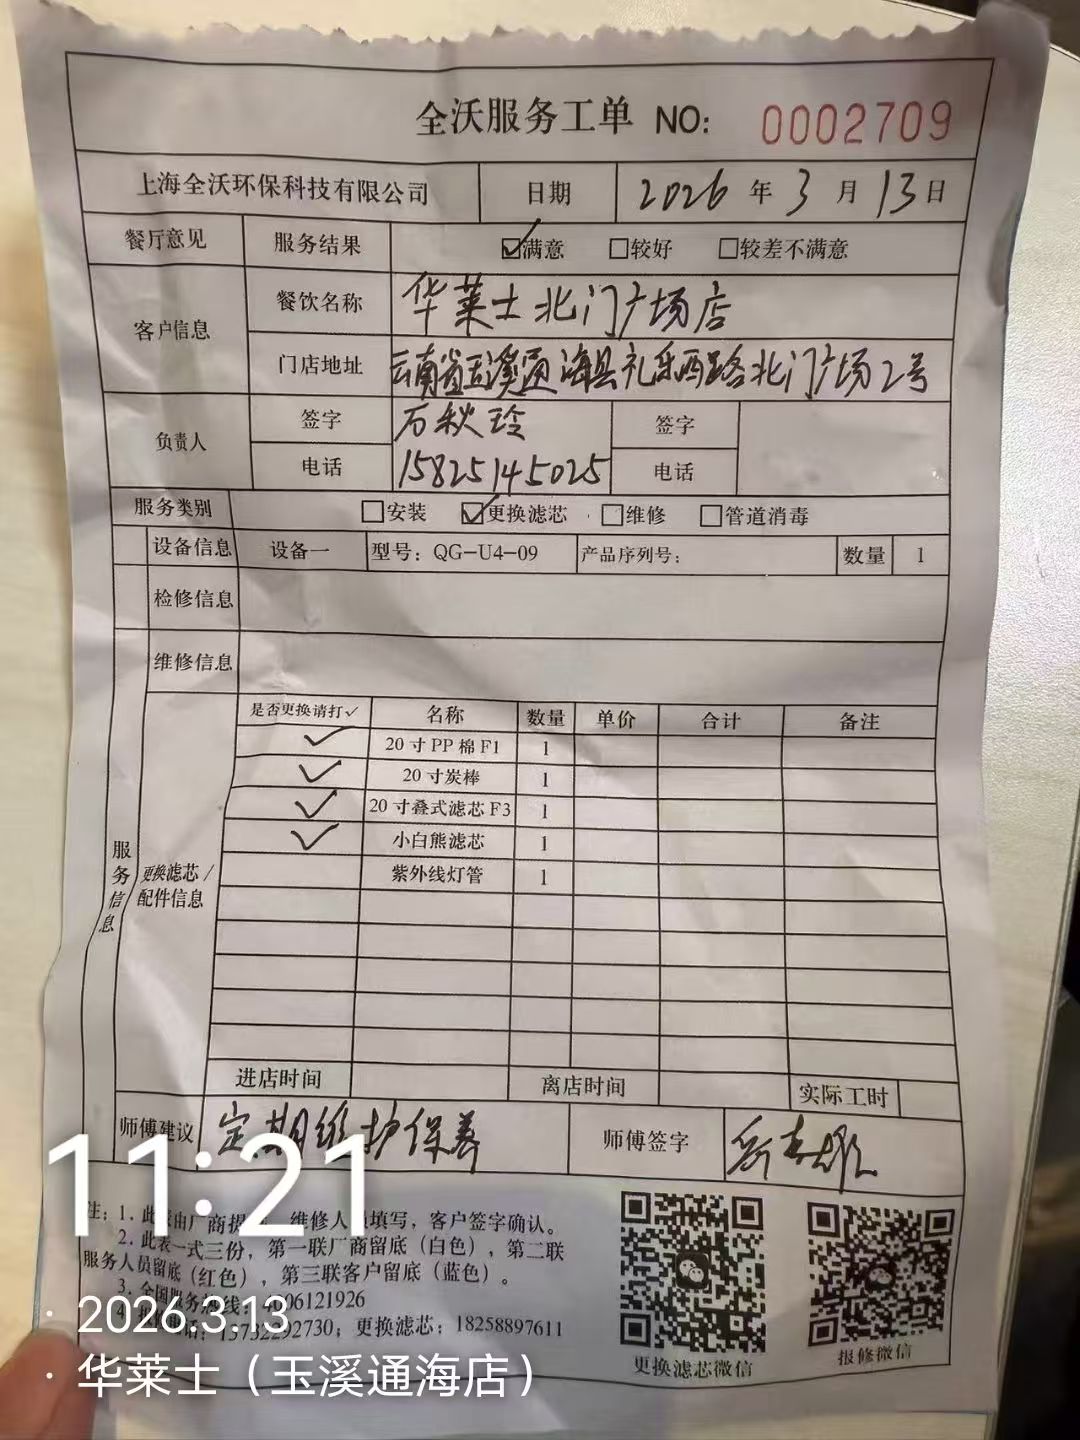 全沃服务工单 NO: 0002709
上海全沃环保科技有限公司 日期 2026年3月13日
餐厅意见 服务结果 ☑满意 □较好 □较差不满意
客户信息 餐饮名称 华莱士北门广场店
门店地址 云南省玉溪通海县礼乐西路北门广场2号
负责人 签字 石秋玲 签字
电话 15825145025 电话
服务类别 □安装 ☑更换滤芯 □维修 □管道消毒
设备信息 设备一 型号：QG-U4-09 产品序列号： 数量 1
检修信息
维修信息
服务信息
更换滤芯/配件信息
是否更换请打✓ 名称 数量 单价 合计 备注
✓ 20寸PP棉F1 1
✓ 20寸炭棒 1
✓ 20寸叠式滤芯F3 1
✓ 小白熊滤芯 1
紫外线灯管 1
进店时间 离店时间 实际工时
师傅建议 定期维护保养 师傅签字
注：1. 此 由厂商提 维修人员填写，客户签字确认。
2. 此表一式三份，第一联厂商留底（白色），第二联
服务人员留底（红色），第三联客户留底（蓝色）。
3. 全国服务热线：4006121926
4. 电话：13732292730；更换滤芯：18258897611
更换滤芯微信 报修微信
11:21
· 2026.3.13
· 华莱士（玉溪通海店）